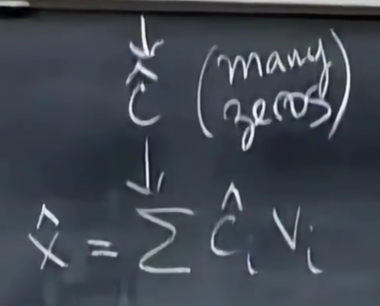 ↓
ĉ (many
zeros)
↓
x̂ = Σ ĉᵢ vᵢ